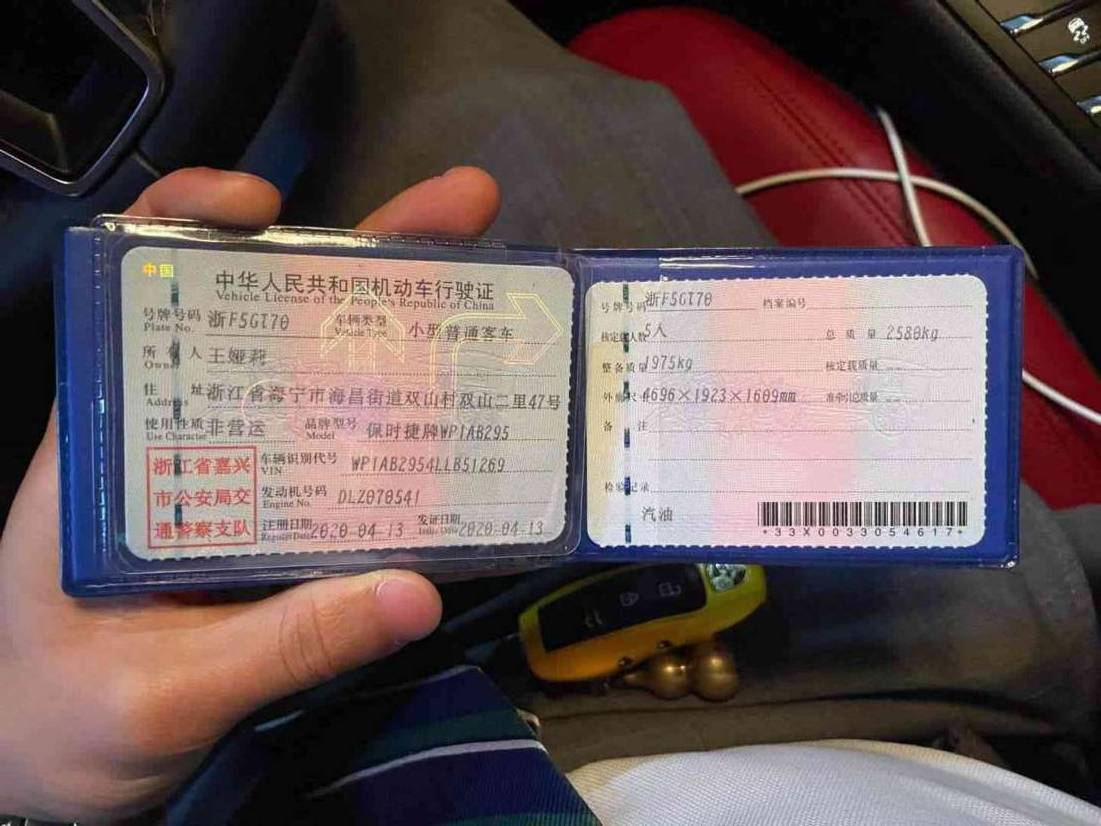 中国
中华人民共和国机动车行驶证
Vehicle License of the People's Republic of China
号牌号码 Plate No. 浙F5GT70 车辆类型 Vehicle Type 小型普通客车
所有人 Owner 王娅莉
住址 Address 浙江省海宁市海昌街道双山村双山二里47号
使用性质 Use Character 非营运 品牌型号 Model 保时捷牌WP1AB295
浙江省嘉兴
市公安局交
通警察支队
车辆识别代号 VIN WP1AB2954LLB51269
发动机号码 Engine No. DLZ070541
注册日期 Register Date 2020-04-13 发证日期 Issue Date 2020-04-13
号牌号码 浙F5GT70 档案编号
核定载人数 5人 总质量 2580kg
整备质量 1975kg 核定载质量 --
外廓尺寸 4696×1923×1609mm 准牵引总质量 --
备注
检验记录
汽油
*33X0033054617*